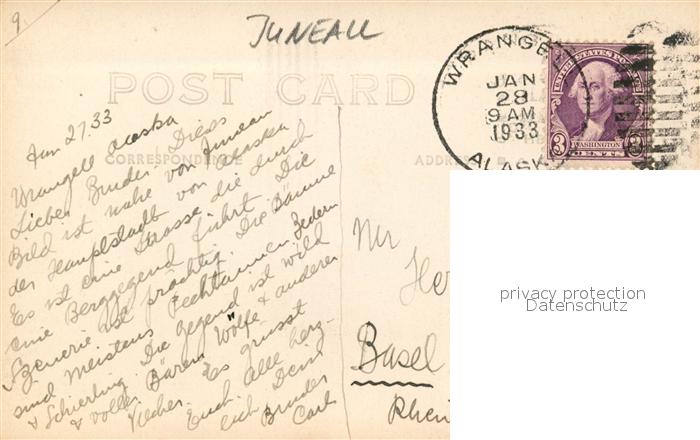 9
JUNEAU
POST CARD
CORRESPONDENCE
ADDRESS
WRANGELL
JAN
28
9 AM
1933
ALASKA
UNITED STATES POSTAGE
3 WASHINGTON 3
CENTS
Jan 27.33
Wrangell Alaska
Lieber Bruder. Dieses
Bild ist nahe von Juneau
der Hauptstadt von Alaska
Es ist eine Strasse die durch
eine Berggegend führt. Die
Szenerie ist prächtig. Die Bäume
sind meistens Pechtannen Zedern
& Schierling. Die Gegend ist wild
& voller Bären Wölfe & anderer
Viecher. Es grüsst
Euch Alle herz-
lich Dein
Bruder
Carl
Mr
Her
Basel
Rhein
privacy protection
Datenschutz